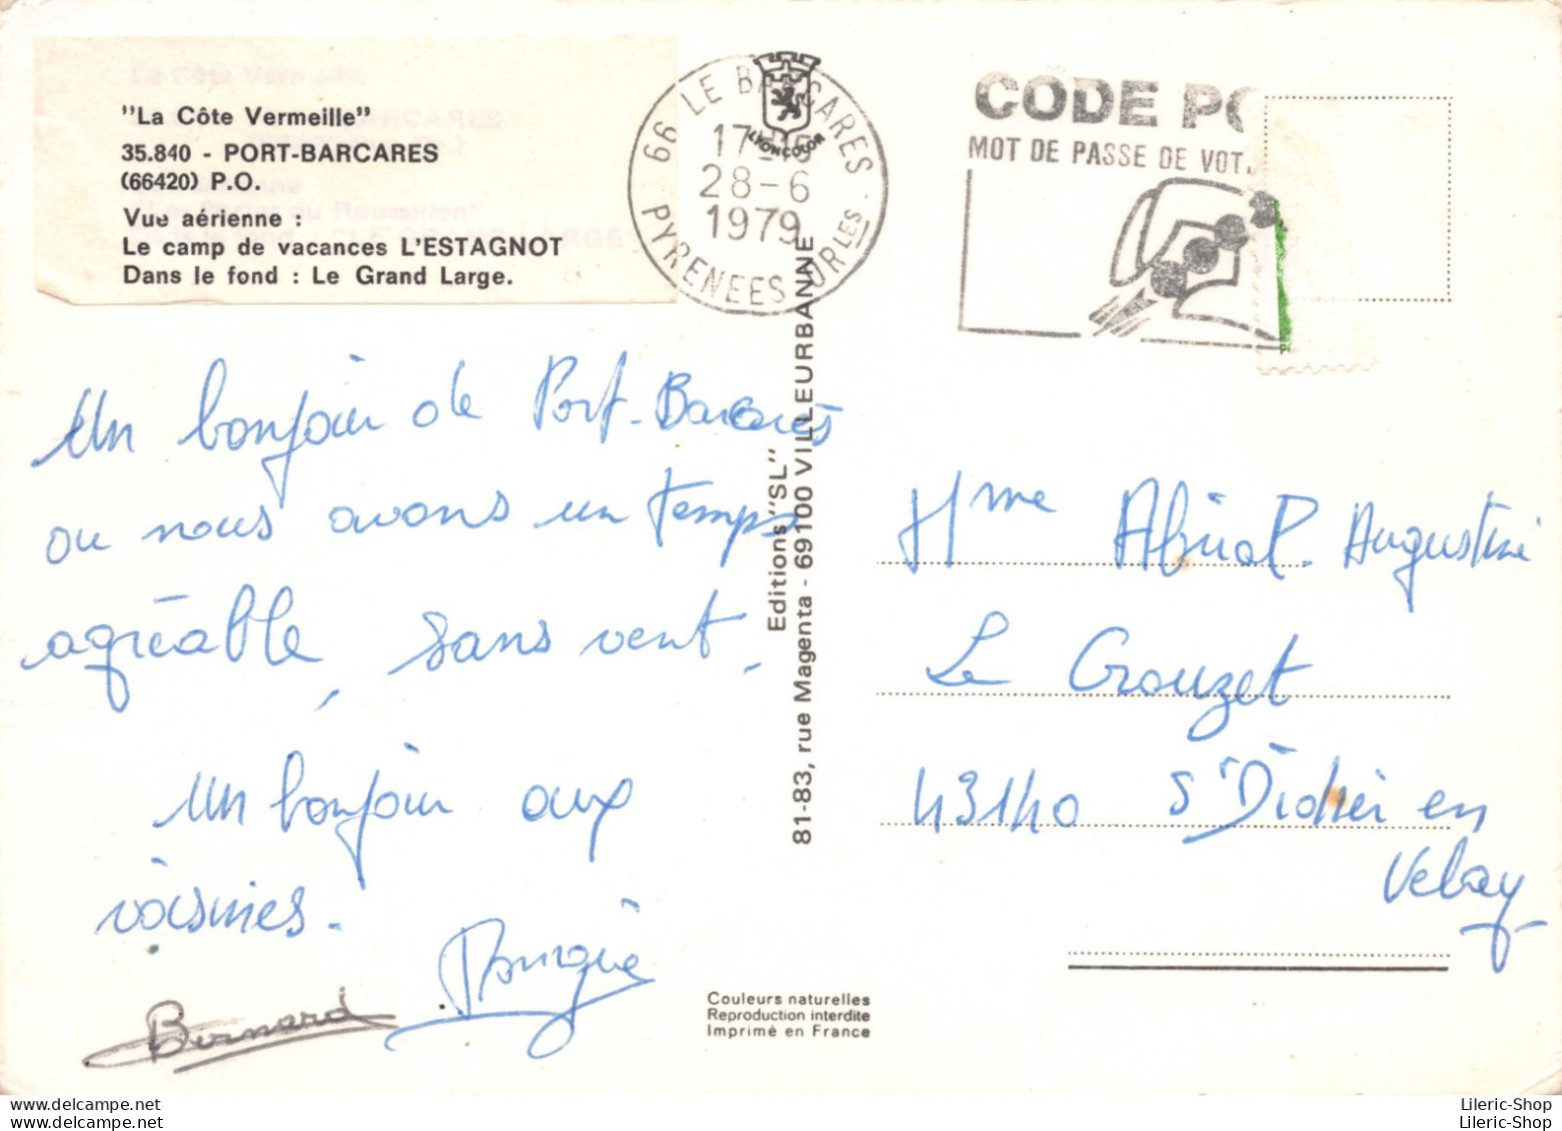 "La Côte Vermeille"
35.840 - PORT-BARCARES
(66420) P.O.
Vue aérienne :
Le camp de vacances L'ESTAGNOT
Dans le fond : Le Grand Large.
66 LE BARCARES
17
28-6
1979
PYRENEES ORLES
LYONCOLOR
CODE PO
MOT DE PASSE DE VOT
Un bonjour de Port-Barcarès
ou nous avons un temps
agréable, sans vent.
Un bonjour aux
voisines.
Bernard
Editions "SL"
81-83, rue Magenta - 69100 VILLEURBANNE
Mme Abrial. Augustine
Le Crouzet
43140 St Didier en
Velay
Couleurs naturelles
Reproduction interdite
Imprimé en France
delcampe.net
delcampe.net
Lileric-Shop
Lileric-Shop